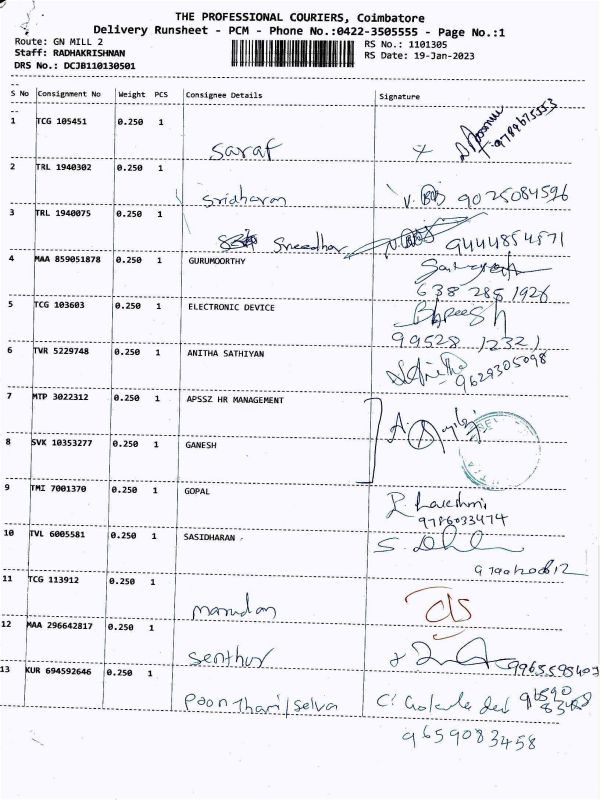 THE PROFESSIONAL COURIERS, Coimbatore
Delivery Runsheet - PCM - Phone No.:0422-3505555 - Page No.:1
Route: GN MILL 2 RS No.: 1101305
Staff: RADHAKRISHNAN RS Date: 19-Jan-2023
DRS No.: DCJB110130501
S No Consignment No Weight PCS Consignee Details Signature
1 TCG 105451 0.250 1 Saraf 9789675553
2 TRL 1940302 0.250 1 Sridharan V. 9025084596
3 TRL 1940075 0.250 1 Sreedhar 9444854571
4 MAA 859051878 0.250 1 GURUMOORTHY
638 285 1926
5 TCG 103603 0.250 1 ELECTRONIC DEVICE
99528 12321
6 TVR 5229748 0.250 1 ANITHA SATHIYAN S. Anitha
9629305098
7 MTP 3022312 0.250 1 APSSZ HR MANAGEMENT
8 SVK 10353277 0.250 1 GANESH
9 TMI 7001370 0.250 1 GOPAL
9786033474
10 TVL 6005581 0.250 1 SASIDHARAN
11 TCG 113912 0.250 1
12 MAA 296642817 0.250 1 Senthur
13 KUR 694592646 0.250 1
9659083458